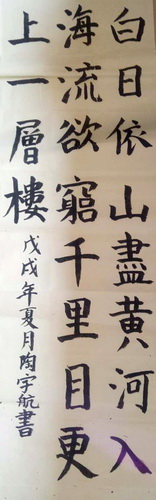 白日依山盡黄河入
海流欲窮千里目更
上一層樓
戊戌年夏月陶宇航書